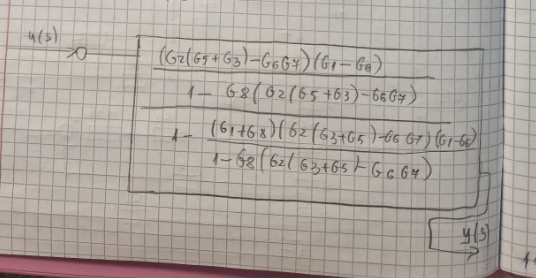 u(s)
(G2(G5+G3)-G6G7)(G1-G8)
1- G8(G2(G5+G3)-G6G7)
1- (G1+G8)(G2(G3+G5)-G6G7)(G1-G8)
1-G8(G2(G3+G5)-G6G7)
y(s)